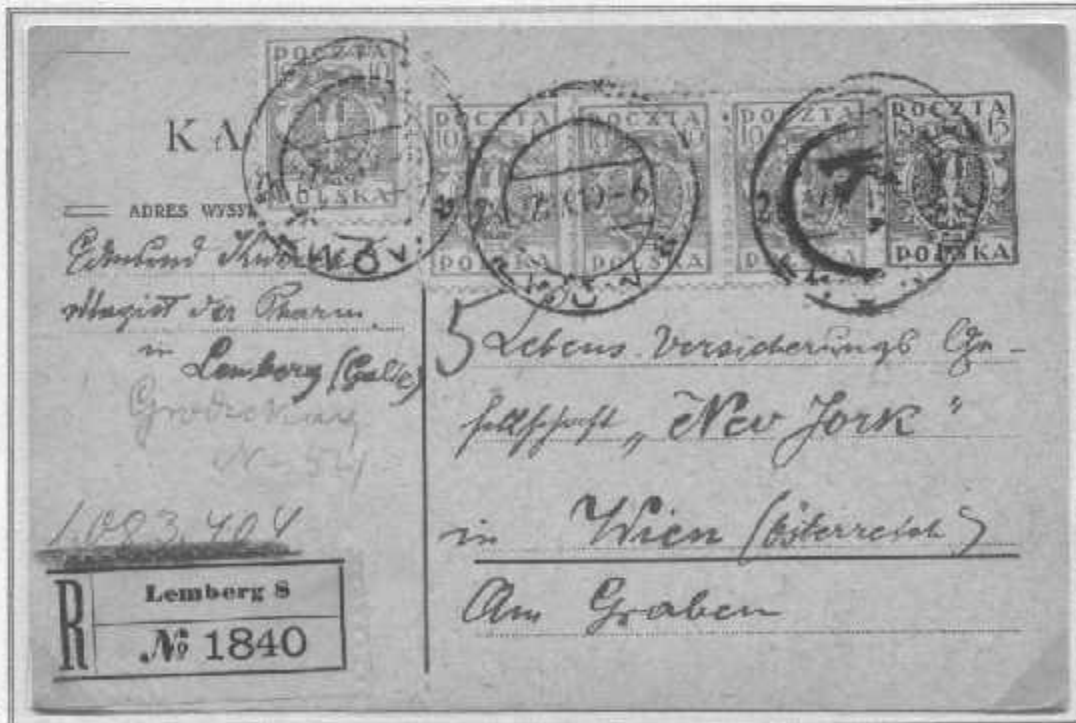 POCZTA
10 10
POLSKA
POCZTA
10
POLSKA
POCZTA
10
POLSKA
POCZTA
10
POLSKA
POCZTA
15 15
POLSKA
KA
ADRES WYSY
Edmund
Magist der Pharm.
in
Lemberg (Galiz)
1.083.404
R
Lemberg 8
№ 1840
5
Lebens Versicherungs Ge-
sellschaft „New Jork"
in Wien (Österreich)
Am Graben